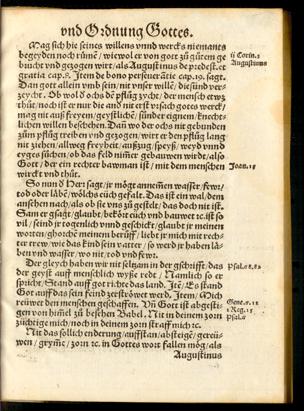 vnd Ordnung Gottes.
Mag sich hie seines willens vnnd wercks niemants
begeyden noch rümē / wiewol er von gott zů gůtem ge
bucht vnd gezogen wirt / als Augustinus de predest. et
gratia cap. Item de bono perseuerātie cap. 19. sagt.
Dan gott allein vmb sein / nit vnser willē / die sünd ver-
zeycht. Ob wol ds ochs dē pflůg zycht / der mensch etwz
thůt / noch ist er nur die and nit erst vrsach gotes werck /
mag nit auß freyen / geystlichē / sünder eignem / knecht-
lichen willen beschehen. Dan wo der ochs nit gebunden
zům pflůg triben vnd gezogen / wirt er den pflůg lang
nit ziehen / allweg freyheit / außzug / speyß / weyd vnnd
eyges sůchen / ob das feld nim̄er gebauwen wirdt / also
Gott / der ein rechter bawman ist / mit dem menschen
wirckt vnd thůt.
So nun d Herr sagt / je mögt annemēn wasser / fewr /
tod oder läbē / wölchs euch gefalt. Das ist ein wal / dem
ansehen nach / als ob sie vns zů gestelt / das doch nit ist.
Sam er sagt / glaubt / bekört euch vnd bauwet rc. ist so
vil / seind jr togenlich vnd geschickt / glaubt jr meinen
worten / ghorchē meinem berůff / liebt jr mich mit rech-
ter trew / wie das kind sein vatter / so werd jr haben lä-
ben vnd wasser / wo nit / tod vnd fewr.
Der gleych haben wir nit seltzam in der gschrifft / das
der geyst auff menschlich wyße redt / Namlich so er
spricht / Stand auff Gott richt das land. Jtē / Es stand
Gott auff das sein feind zerströwet werd. Jtem / Mich
reüwet den menschen geschaffen. Vn̄ Gott ist abgesti-
gen von himel zů besehen Babel. Nit in deinem zorn
züchtige mich / noch in deinem zorn straff mich rc.
Nit das sollich enderung / auffstan / absteigē / gereü-
wen / grym̄e / zorn rc. in Gottes wort fallen mög / als
Augustinus
ij Corin.
Augustinus
Joan.15
Psal.
Gene.
1 Reg.15
Psal.